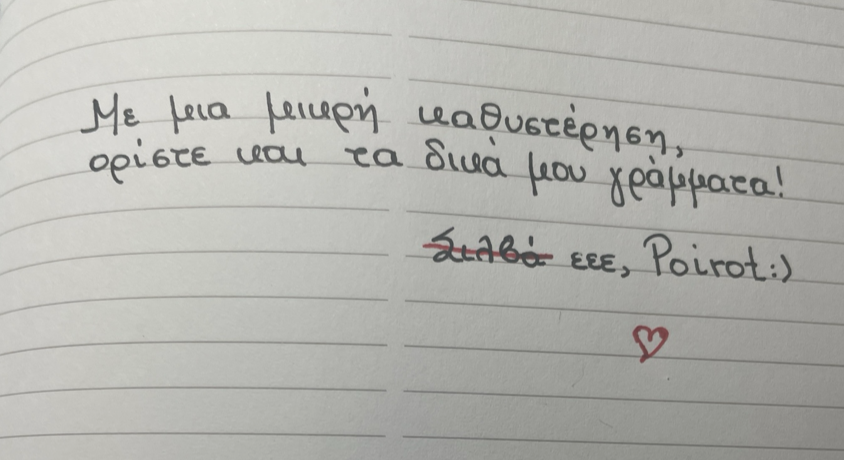 Με μια μικρή καθυστέρηση,
ορίστε και τα δικά μου γράμματα!
Σιλβά εεε, Poirot:)